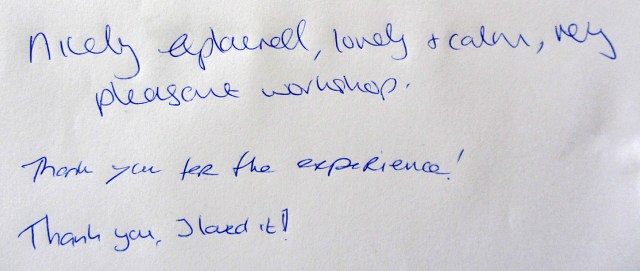 Nicely explained, lovely & calm, very
pleasant workshop.
Thank you for the experience!
Thank you, I loved it!